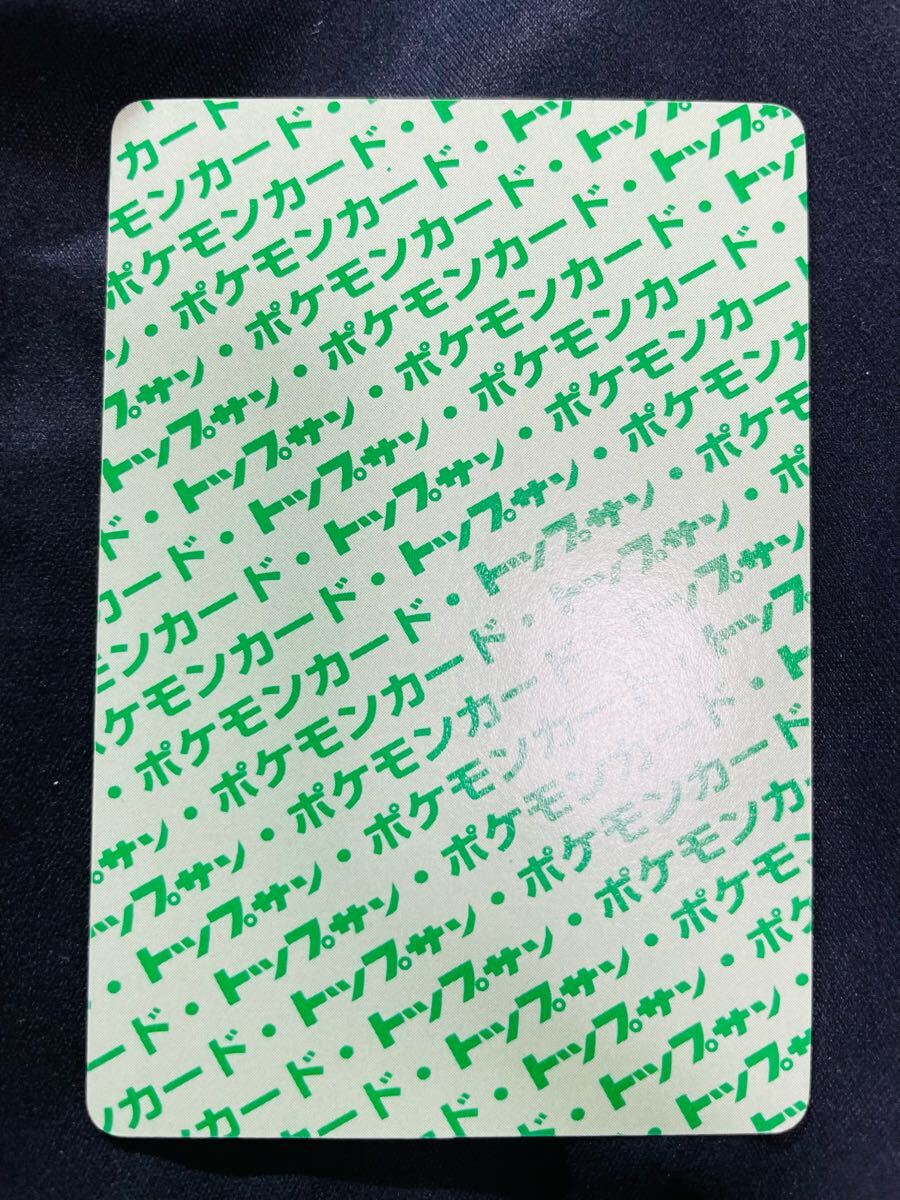 カード・
モンカード・
ポケモンカード・ト
ン・ポケモンカード・トップ
プサン・ポケモンカード・トップサ
トップサン・ポケモンカード・トップサ
ド・トップサン・ポケモンカード・トップ
カード・トップサン・ポケモンカード・ト
モンカード・トップサン・ポケモンカード
ポケモンカード・トップサン・ポケモンカ
・ポケモンカード・トップサン・ポケモ
サン・ポケモンカード・トップサン・ポ
ップサン・ポケモンカード・トップサン
・トップサン・ポケモンカード・トップ
ード・トップサン・ポケモンカード・ト
ンカード・トップサン・ポケモンカード
ンカード・トップサン・ポケモンカ
ード・トップサン・ポケモン
・トップサン・ポケ
トップサン・
トップ